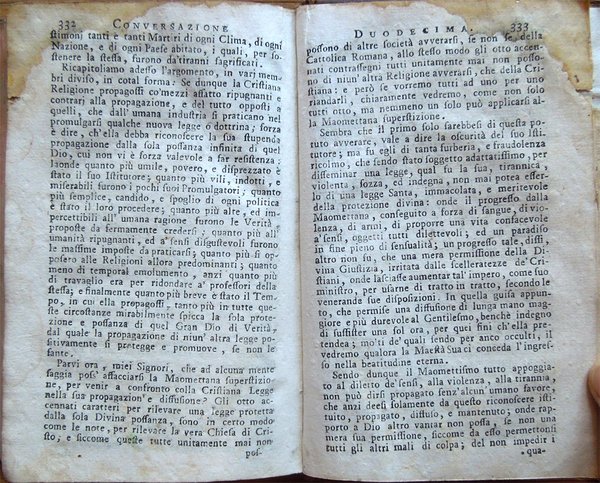 332 CONVERSAZIONE
stimonj tanti e tanti Martiri di ogni Clima, di ogni
Nazione, e di ogni Paese abitato, i quali, per so-
stenere la stessa, furono da'tiranni sagrificati.
Ricapitoliamo adesso l'argomento, in varj mem-
bri diviso, in cotal forma. Se dunque la Cristiana
Religione propagossi co'mezzi affatto ripugnanti e
contrarj alla propagazione, e del tutto opposti a
quelli, che dall'umana industria si praticano nel
promulgarsi qualche nuova legge o dottrina; forza
è dire, ch'ella debba riconoscere la sua stupenda
propagazione dalla sola possanza infinita di quel
Dio, cui non vi è forza valevole a far resistenza:
laonde quanto più umile, povero, e disprezzato è
stato il suo Istitutore; quanto più vili, indotti, e
miserabili furono i pochi suoi Promulgatori; quanto
più semplice, candido, e spoglio di ogni politica
è stato il loro procedere; quanto più alte, ed im-
percettibili all'umana ragione furono le Verità
proposte da fermamente credersi; quanto più all'
umanità ripugnanti, ed a'sensi disgustevoli furono
le massime imposte da praticarsi; quanto più si op-
posero alle Religioni allora predominanti; quanto
meno di temporal emolumento, anzi quanto più
di travaglio era per ridondare a' professori della
stessa; e finalmente quanto più breve è stato il Tem-
po, in cui ella propagossi, tanto più in tutte que-
ste circostanze mirabilmente spicca la sola prote-
zione e possanza di quel Gran Dio di Verità,
dal quale la propagazione di niun'altra legge po-
sitivamente si protegge e promuove, se non le
sante.
Parvi ora, miei Signori, che ad alcuna mente
saggia poss'affacciarsi la Maomettana superstizio-
ne, per venire a confronto colla Cristiana Legge
nella sua propagazion'e diffusione? Gli otto ac-
cennati caratteri per rilevare una legge protetta
dalla sola Divina possanza, sono in certo modo
come le note, per rilevare la vera Chiesa di Cri-
sto; e siccome queste tutte unitamente mai non
pos-
DUODECIMA. 333
possono di altre società avverarsi, se non se della
Cattolica Romana, allo stesso modo gli otto accen-
nati contrassegni tutti unitamente mai non posso-
no di niun'altra Religione avverarsi, che della Cri-
stiana: e però se vorremo tutti ad uno per uno
riandarli, chiaramente vedremo, come non solo
tutti otto, ma nemmeno un solo può applicarsi al-
la Maomettana superstizione.
Sembra che il primo solo sarebbesi di questa po-
tuto avverare, vale a dire la oscurità del suo Isti-
tutore; ma fu egli di tanta furberia, e fraudolenza
ricolmo, che sendo stato soggetto adattatissimo, per
disseminar una legge, qual fu la sua, tirannica,
violenta, sozza, ed indegna, non mai potea esser-
lo di una legge Santa, immacolata, e meritevole
della protezione divina: onde il progresso della
Maomettana, conseguito a forza di sangue, di vio-
lenza, di armi, di proporre una vita confacevole
a'sensi, oggetti tutti dilettevoli, ed un paradiso
in fine pieno di sensualità; un progresso tale, dissi,
altro non fu, che una mera permissione della Di-
vina Giustizia, irritata dalle scelleratezze de'Cri-
stiani, onde lasciasse aumentar tal'impero, come suo
ministro, per usarne di tratto in tratto, secondo le
venerande sue disposizioni. In quella guisa appun-
to, che permise una diffusione di lunga mano mag-
giore e più durevole al Gentilesmo, benchè indegno
di sussister una sol ora, per quei fini ch'ella pre-
tendea; mo'ti de'quali sendo per anco occulti, il
vedremo qualora la Maestà Sua ci conceda l'ingres-
so nella beatitudine eterna.
Sendo dunque il Maomettismo tutto appoggia-
to al diletto de'sensi, alla violenza, alla tirannia,
non può dirsi propagato senz'alcun'umano favore,
che anzi deesi solamente da questo riconoscere isti-
tuito, propagato, diffuso, e mantenuto; onde rap-
porto a Dio altro vantar non possa, se non una
mera sua permissione, siccome da esso permettonsi
tutti gli altri mali di colpa, del non impedir i
qua-